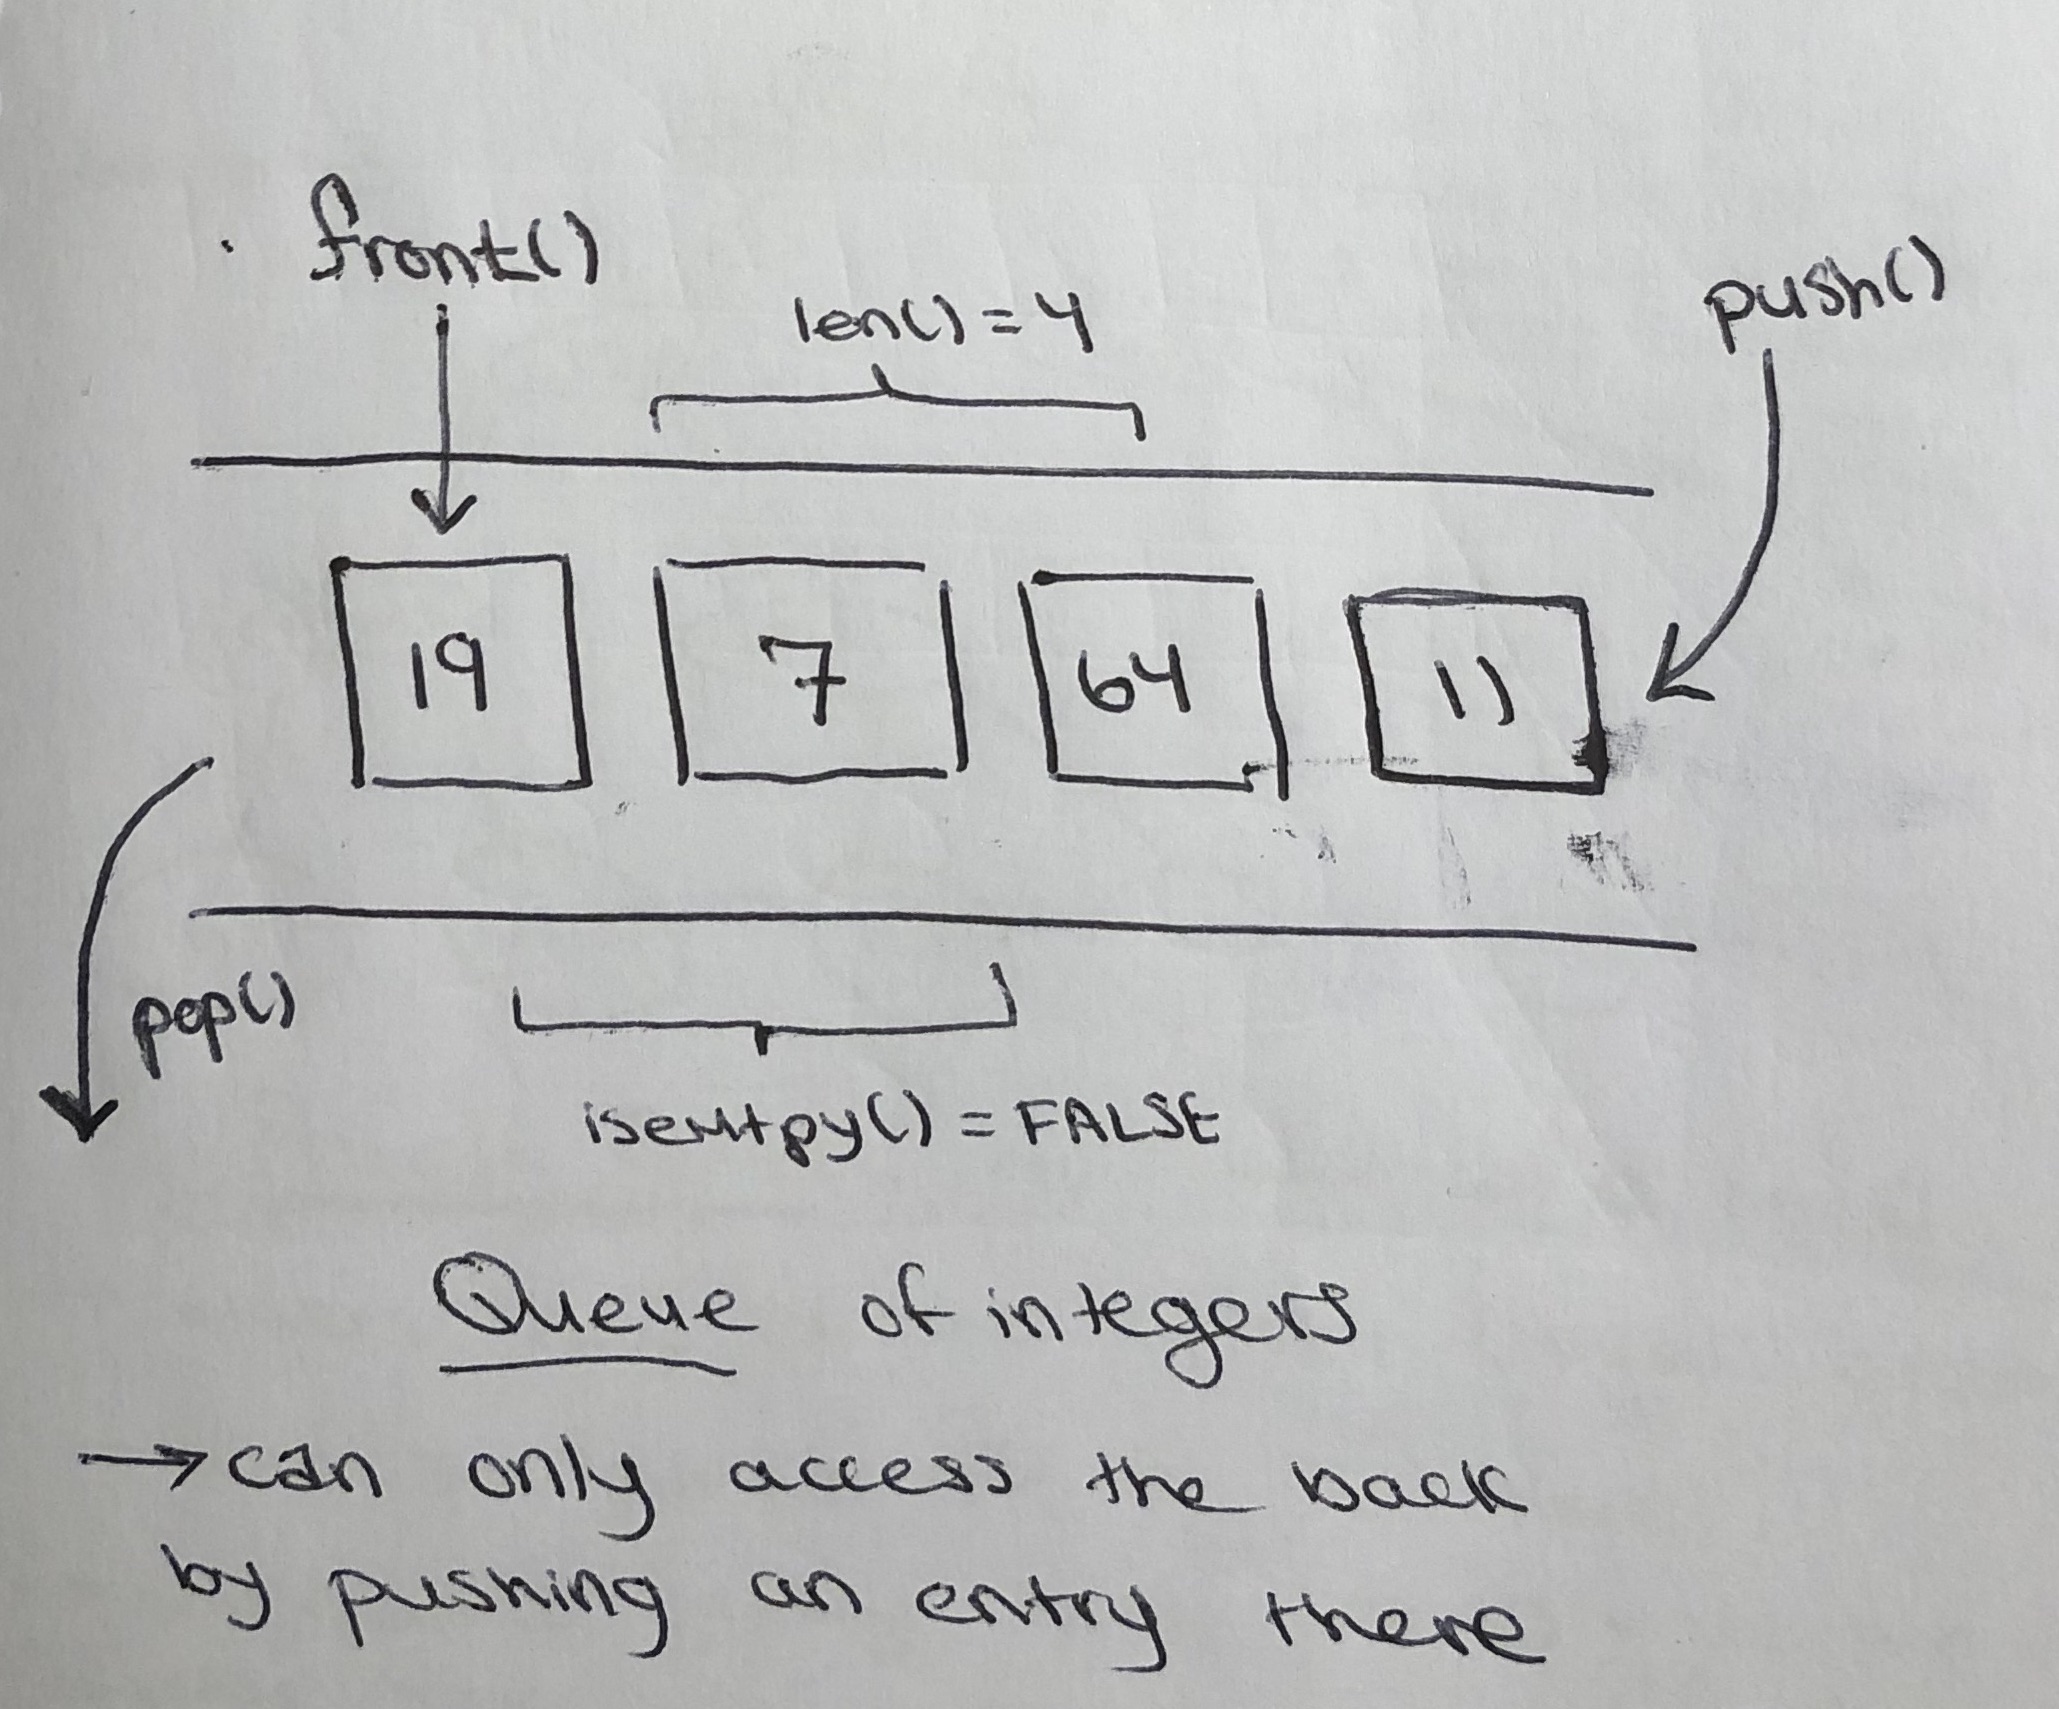 front()
len() = 4
push()
19 7 64 11
pop()
isemtpy() = FALSE
Queue of integers
→ can only access the back
by pushing an entry there